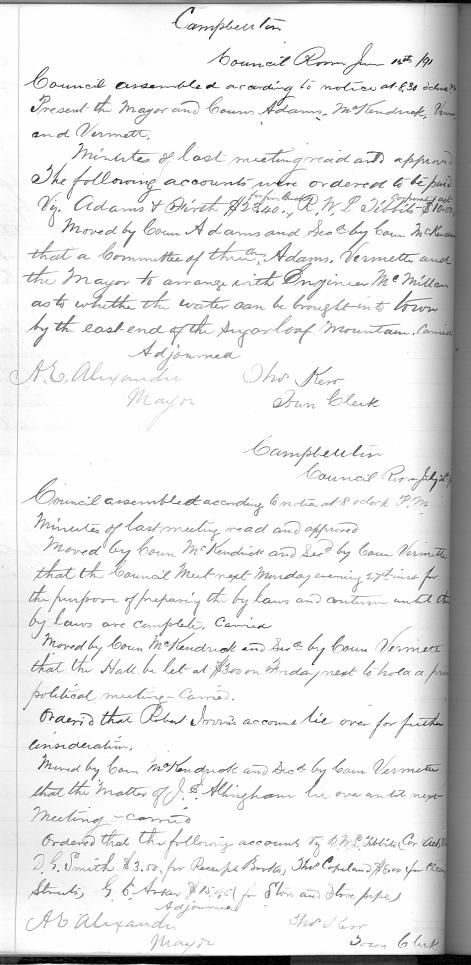 Campbellton
Council Room June 12th /91
Council assembled acording to notice at 8.30 oclock P.M
Present the Mayor and Couns Adams, McKendrick,
and Vermett.
Minutes of last meeting read and approved
The following accounts were ordered to be paid
Vz. Adams & Firth $2340., R. W. L Tibbits $10.00,
Moved by Coun Adams and Secd by Coun McKendrick
that a Committee of three, Coun Adams, Vermette and
the Mayor to arrange with Engineer McMillan
as to whethe the water can be brought into town
by the east end of the Sugarloaf Mountain. Carried
Adjourned
A. E. Alexander Thos Kerr
Mayor Town Clerk
Campbellton
Council Room July
Council assembled according to notice at 8 oclock P.M.
Minutes of last meeting read and approved
Moved by Coun McKendrick and Secd by Coun Vermette
that the Council Meet next Monday evening 27th inst for
the purpose of preparing the by laws and continue until the
by laws are complete. Carried
Moved by Coun McKendrick and Secd by Coun Vermett
that the Hall be let at $3.00 on Friday next to hold a
political meeting - Carried.
Ordered that Robert Irvins account lie over for further
consideration.
Moved by Coun McKendrick and Secd by Coun Vermette
that the Matter of J. E. Allingham lie over until next
Meeting - carried
Ordered that the following accounts Vz R. W. L. Tibbits Cor Act,
D. G. Smith $3.50. for Receipt Books, Thos Copeland $6.00 for
Streets, G. E. Asker $15.95 for Stove and Stove pipes
Adjourned
A E Alexander Thos Kerr
Mayor Town Clerk